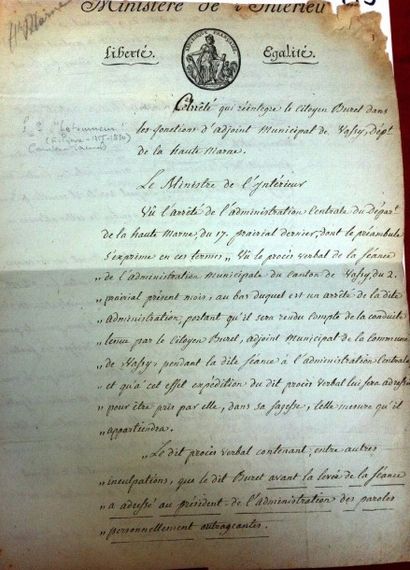 Hte Marne
Ministère de l'Intérieu
Liberté. Egalité.
Arrêté qui réintègre le Citoyen Buret dans
les fonctions d'adjoint Municipal de Vassy, dépt.
de la haute Marne.
Le Ministre de l'Intérieur
Vû l'arrêté de l'administration Centrale du Départ.t
de la haute Marne, du 17. prairial dernier, dont le préambule
s'exprime en ces termes " Vu le procès verbal de la séance
" de l'administration Municipale du Canton de Vassy, du 2.
" prairial présent mois, au bas duquel est un arrêté de la dite
" administration, portant qu'il sera rendu Compte de la conduite
" tenue par le Citoyen Buret, adjoint Municipal de la Commune
" de Vassy, pendant la dite séance à l'administration Centrale
" et qu'à cet effet expédition du dit procès verbal lui sera adressé
" pour être pris par elle, dans sa sagesse, telle mesure qu'il
" appartiendra.
" Le dit procès verbal contenant, entre autres
" inculpations, que le dit Buret avant la levée de la séance
" a adressé au président de l'administration des paroles
" personnellement outrageantes.